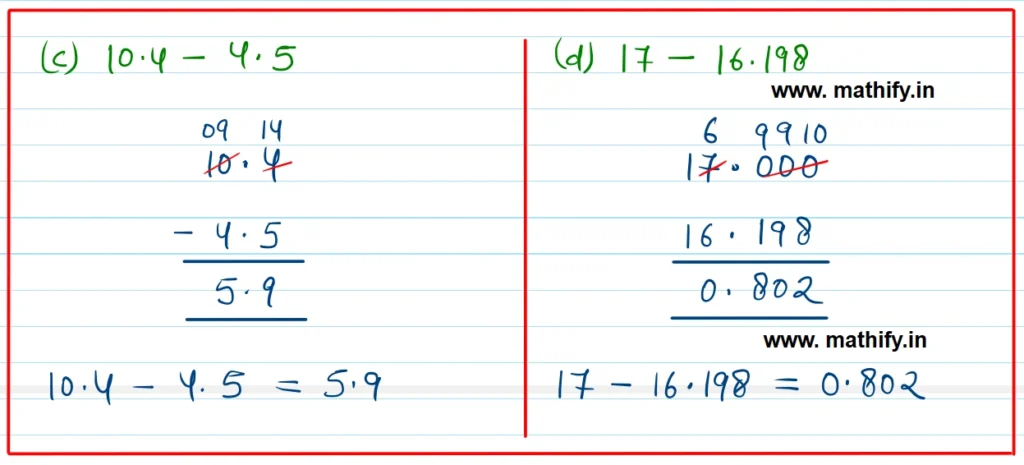 (c) 10.4 - 4.5
09 14
10.4
- 4.5
5.9
10.4 - 4.5 = 5.9
(d) 17 - 16.198
www. mathify.in
6 9 9 10
17.000
16.198
0.802
www. mathify.in
17 - 16.198 = 0.802